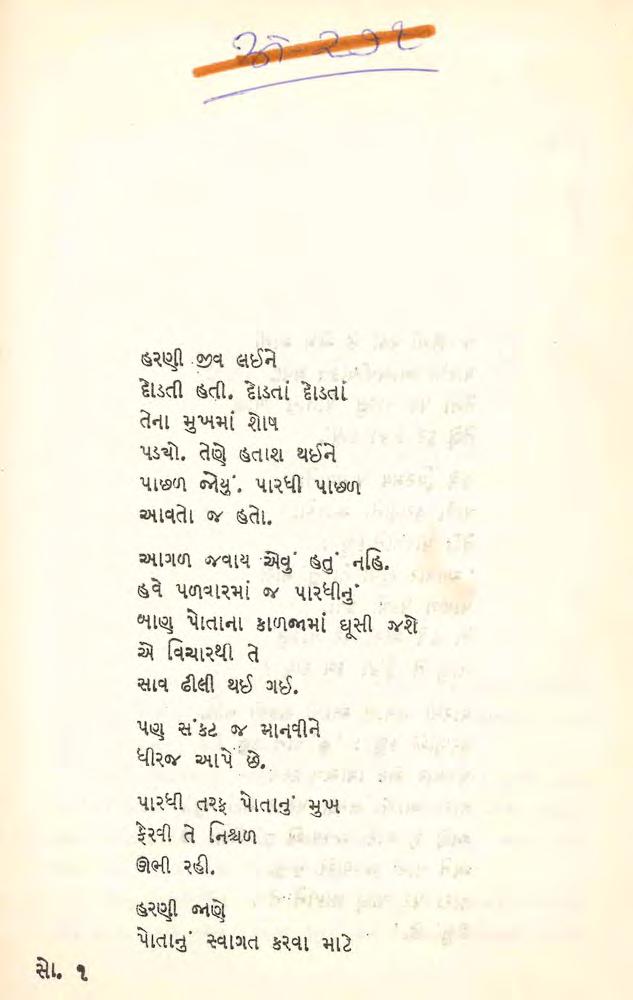 હરણી જીવ લઈને
દોડતી હતી. દોડતાં દોડતાં
તેના મુખમાં શોષ
પડ્યો. તેણે હતાશ થઈને
પાછળ જોયું. પારધી પાછળ
આવતો જ હતો.
આગળ જવાય એવું હતું નહિ.
હવે પળવારમાં જ પારધીનું
બાણ પોતાના કાળજામાં ઘૂસી જશે
એ વિચારથી તે
સાવ ઢીલી થઈ ગઈ.
પણ સંકટ જ માનવીને
ધીરજ આપે છે.
પારધી તરફ પોતાનું મુખ
ફેરવી તે નિશ્ચળ
ઊભી રહી.
હરણી જાણે
પોતાનું સ્વાગત કરવા માટે
સો. ૧